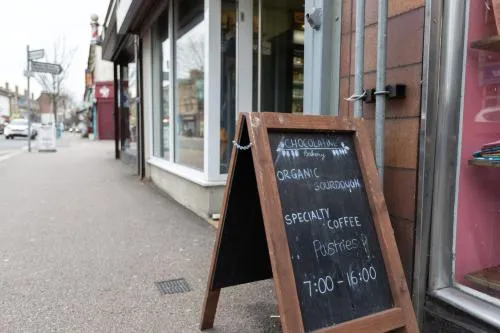 CHOCOLATINE
Bakery
ORGANIC
SOURDOUGH
SPECIALTY
COFFEE
Pastries
7:00-16:00